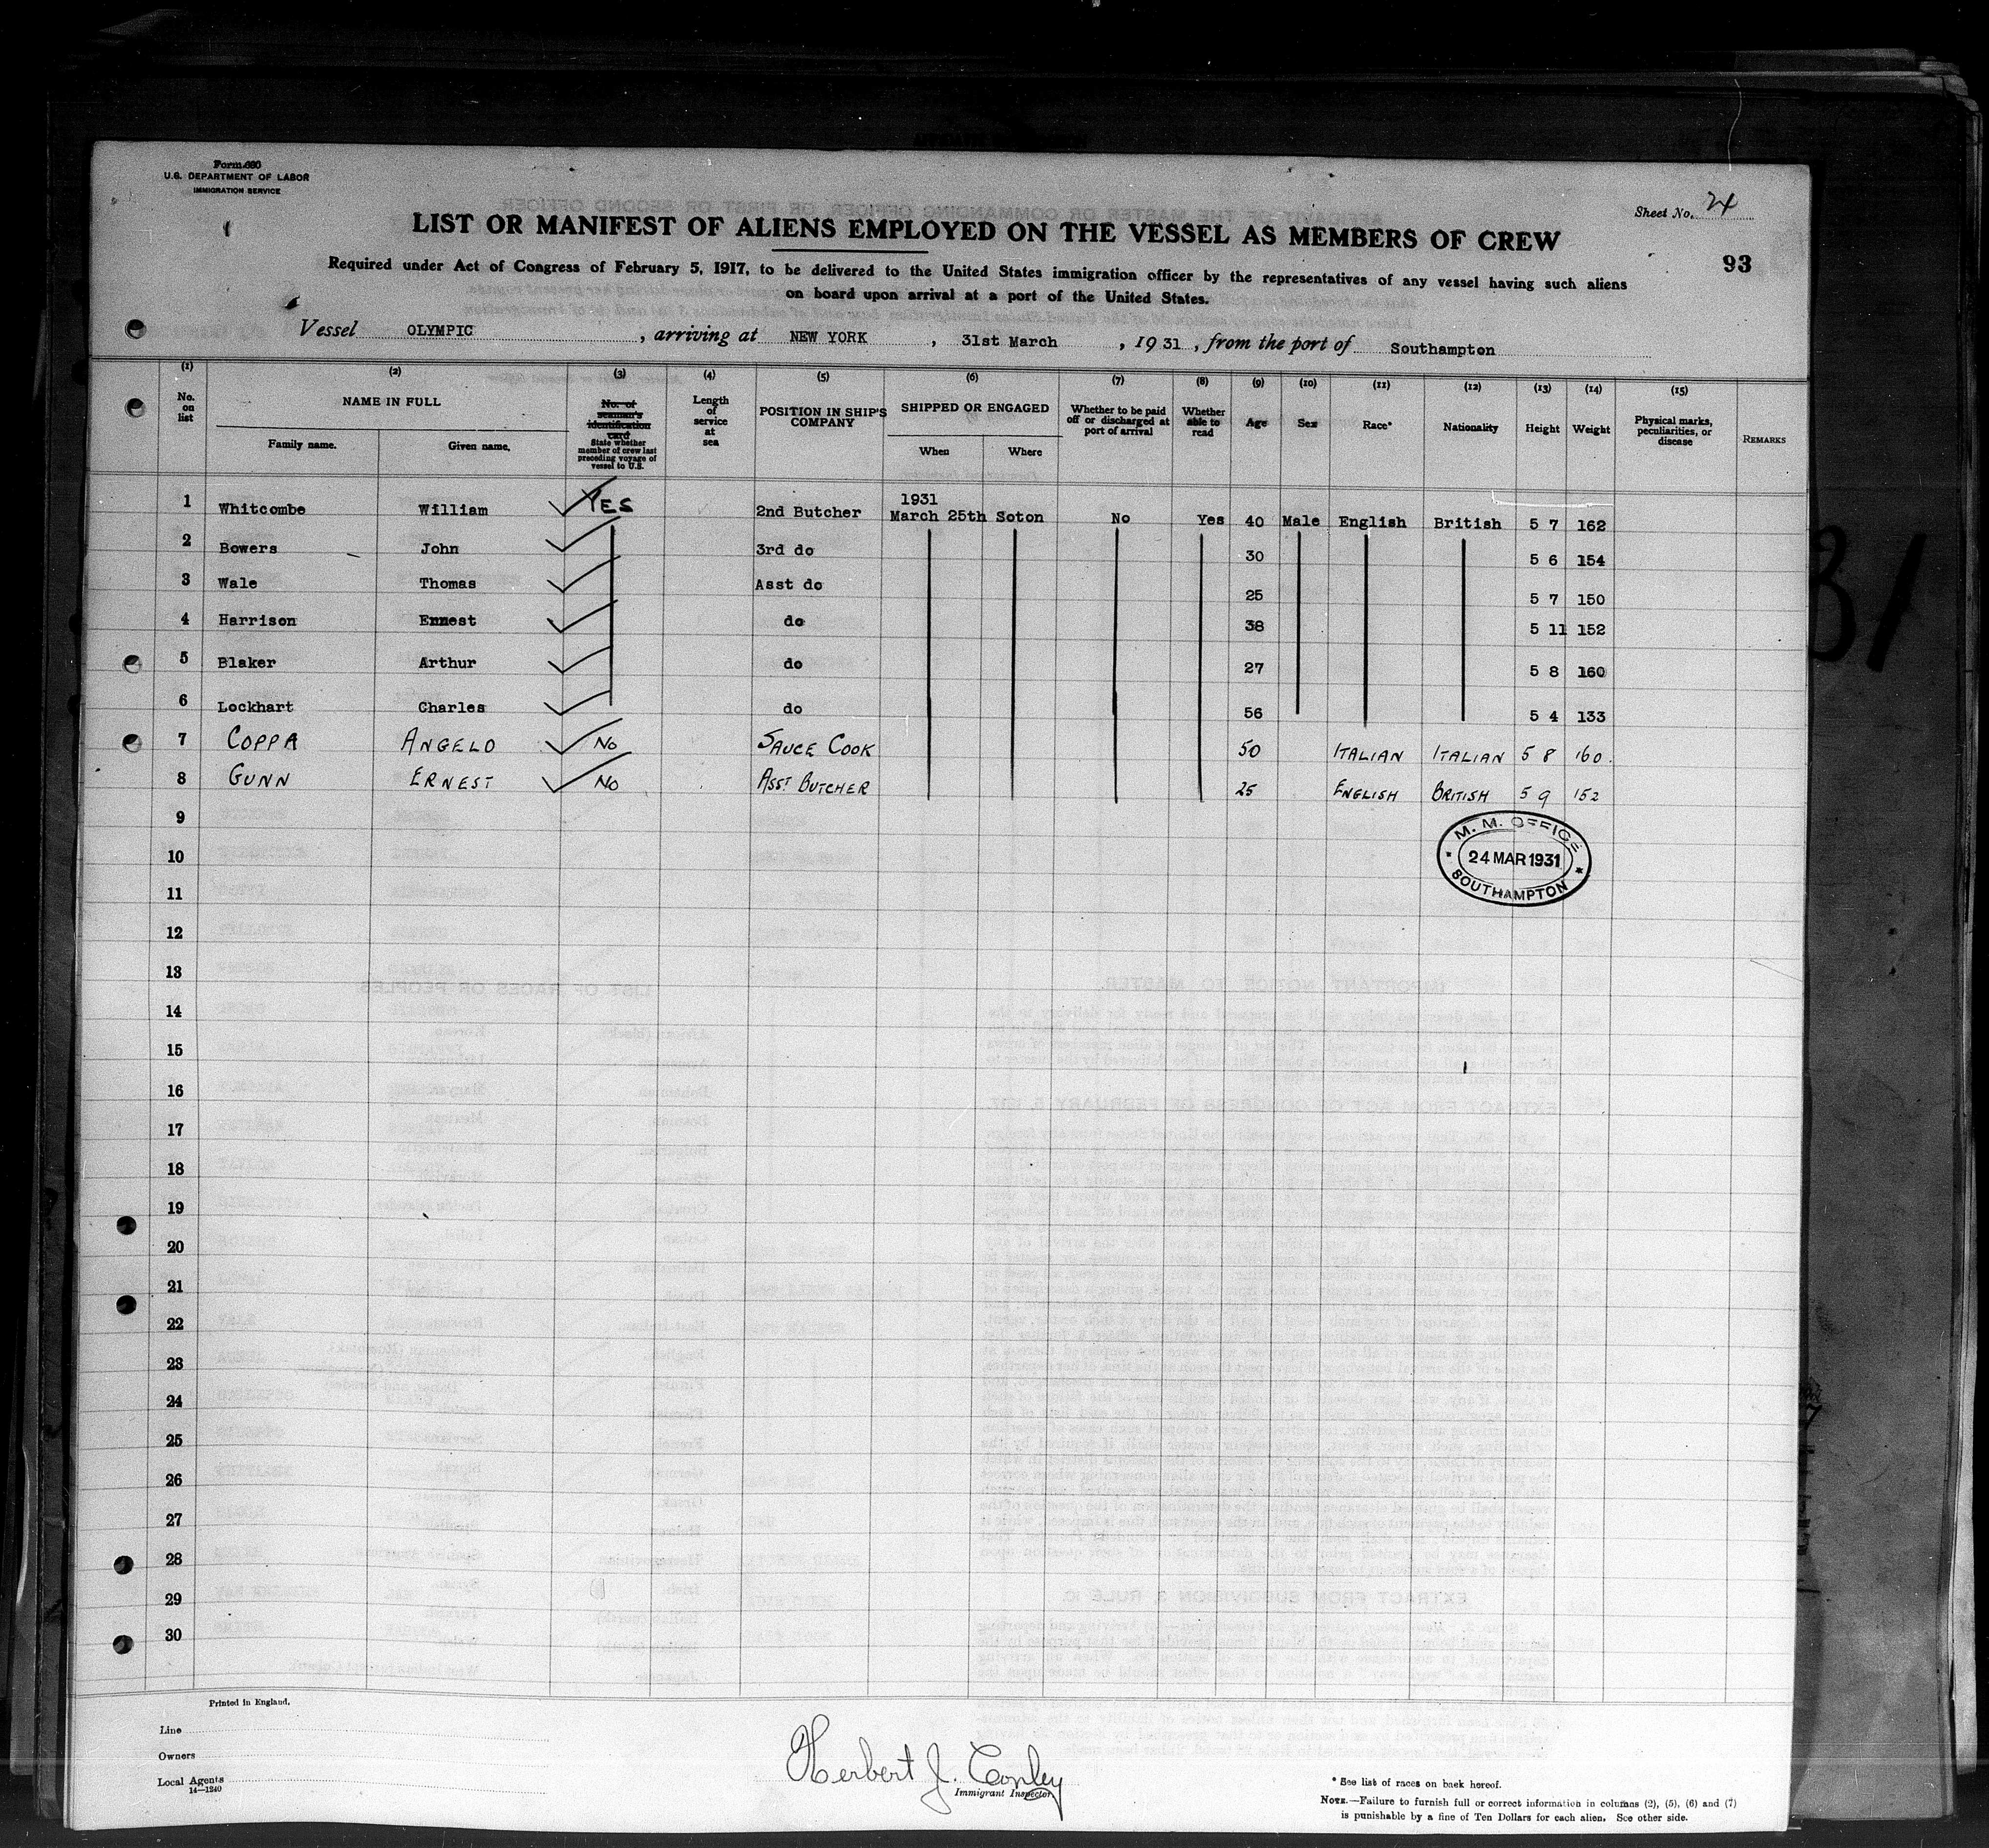 Form 680
U.S. DEPARTMENT OF LABOR
IMMIGRATION SERVICE
Sheet No. 24
LIST OR MANIFEST OF ALIENS EMPLOYED ON THE VESSEL AS MEMBERS OF CREW
93
Required under Act of Congress of February 5, 1917, to be delivered to the United States immigration officer by the representatives of any vessel having such aliens
on board upon arrival at a port of the United States.
Vessel OLYMPIC, arriving at NEW YORK, 31st March, 1931, from the port of Southampton
(1) (2) (3) (4) (5) (6) (7) (8) (9) (10) (11) (12) (13) (14) (15)
No. on list
NAME IN FULL
Family name. Given name.
No. of seaman's identification card
State whether member of crew last preceding voyage of vessel to U.S.
Length of service at sea
POSITION IN SHIP'S COMPANY
SHIPPED OR ENGAGED
When Where
Whether to be paid off or discharged at port of arrival
Whether able to read
Age
Sex
Race*
Nationality
Height
Weight
Physical marks, peculiarities, or disease
REMARKS
1 Whitcombe William YES 2nd Butcher 1931 March 25th Soton No Yes 40 Male English British 5 7 162
2 Bowers John 3rd do 30 5 6 154
3 Wale Thomas Asst do 25 5 7 150
4 Harrison Ernest do 38 5 11 152
5 Blaker Arthur do 27 5 8 160
6 Lockhart Charles do 56 5 4 133
7 COPPA ANGELO No SAUCE COOK 50 ITALIAN ITALIAN 5 8 160.
8 GUNN ERNEST No ASST BUTCHER 25 ENGLISH BRITISH 5 9 152
M. M. OFFICE
24 MAR 1931
SOUTHAMPTON
9
10
11
12
13
14
15
16
17
18
19
20
21
22
23
24
25
26
27
28
29
30
Printed in England.
Line
Owners
Local Agents
14—1240
Herbert J. Conley
Immigrant Inspector.
* See list of races on back hereof.
NOTE.—Failure to furnish full or correct information in columns (2), (5), (6) and (7)
is punishable by a fine of Ten Dollars for each alien. See other side.